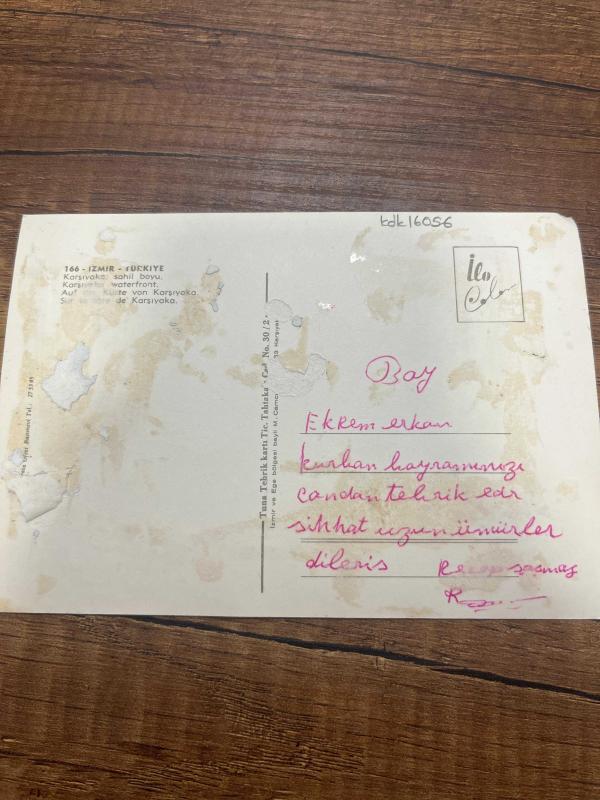 kdk16056
166 - İZMİR - TÜRKİYE
Karşıyaka, sahil boyu.
Karşıyaka waterfront.
Auf der Küste von Karşıyaka.
Sur la côte de Karşıyaka.
İlo
Color
Tuna Tebrik kartı Tic. Tahtaka No. 30/2
İzmir ve Ege bölgesi bayii M. Camcı 33 Karşıyaka
Basımevi Tel.: 27 53 85
Bay
Ekrem erkan
kurban bayramınızı
candan tebrik edr
sihhat uzun ümürler
dileris Recep saşmaz